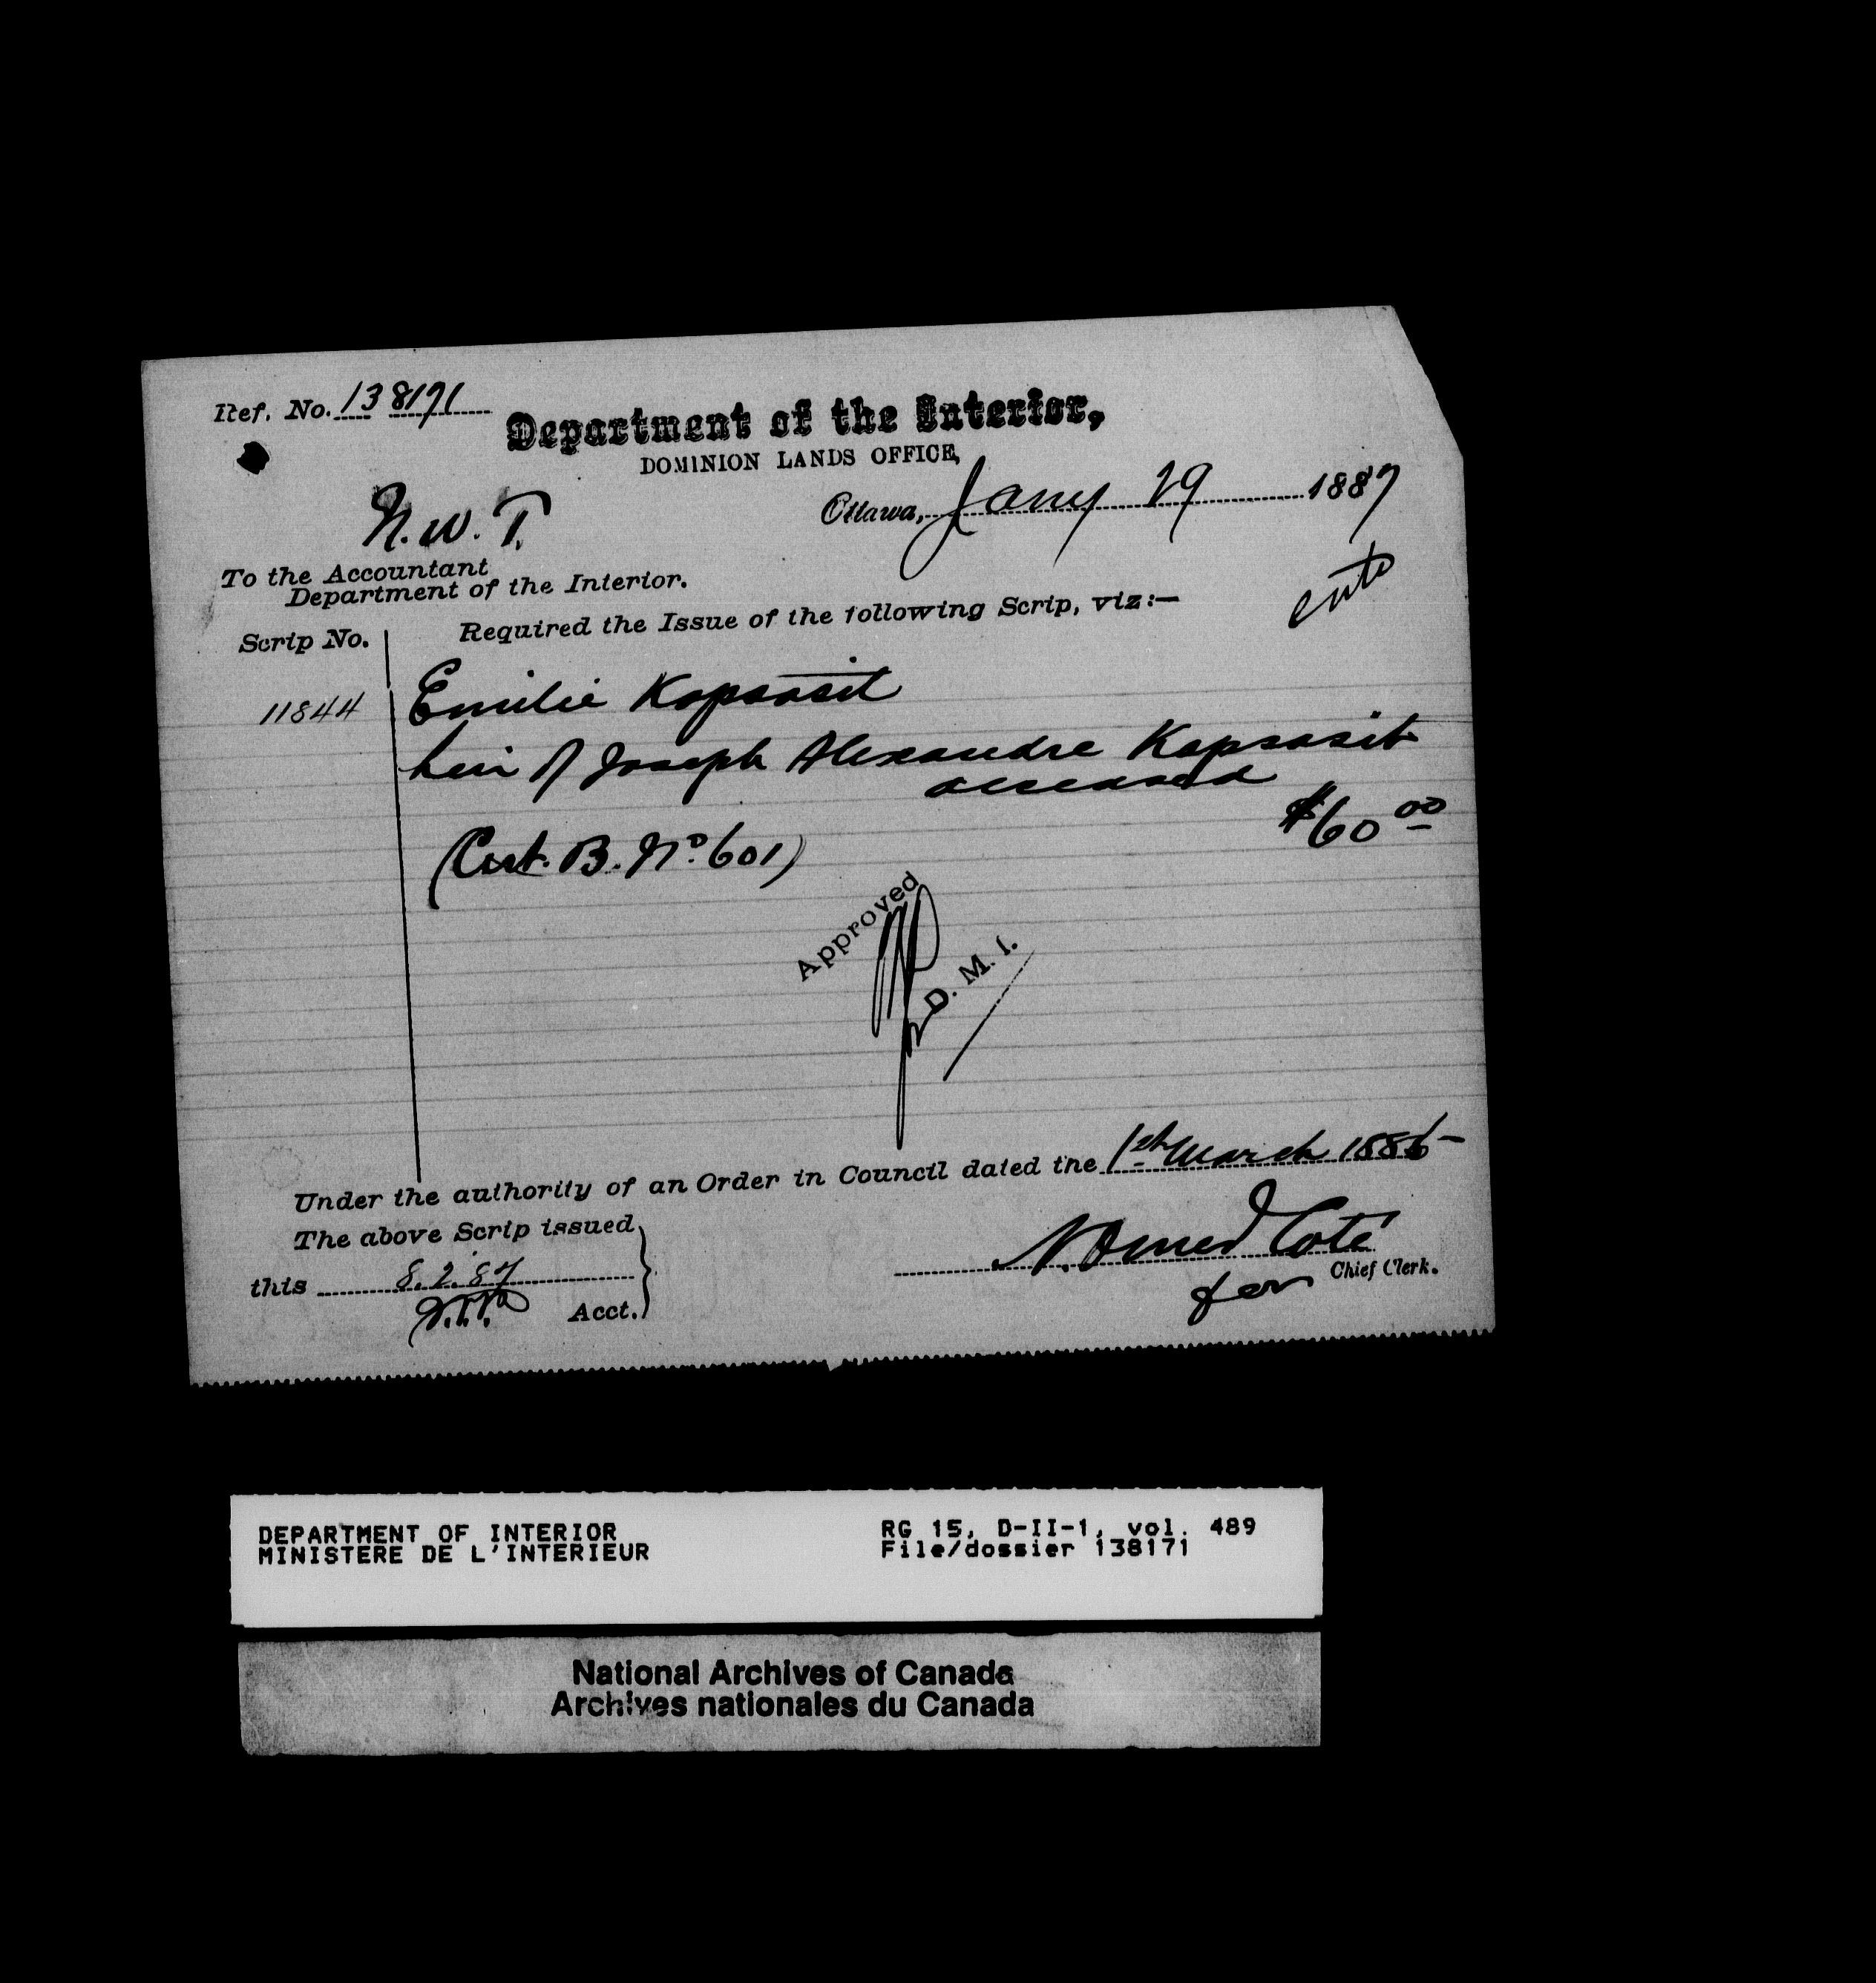 Ref. No. 138171
Department of the Interior,
DOMINION LANDS OFFICE,
N. W. T.
Ottawa, Jany 29 1887
To the Accountant
Department of the Interior.
Required the Issue of the following Scrip, viz:—
Scrip No.
11844 Emilie Kapsasit
heir of Joseph Alexandre Kapsasit
deceased
$60 00
(Cert. B. No. 601)
Approved
D. M. I.
Under the authority of an Order in Council dated the 1st March 1886
The above Scrip issued
this 8.2.87
Acct.
N. Omer Coté
for Chief Clerk.
DEPARTMENT OF INTERIOR
MINISTERE DE L'INTERIEUR
RG 15, D-II-1, vol. 489
File/dossier 138171
National Archives of Canada
Archives nationales du Canada